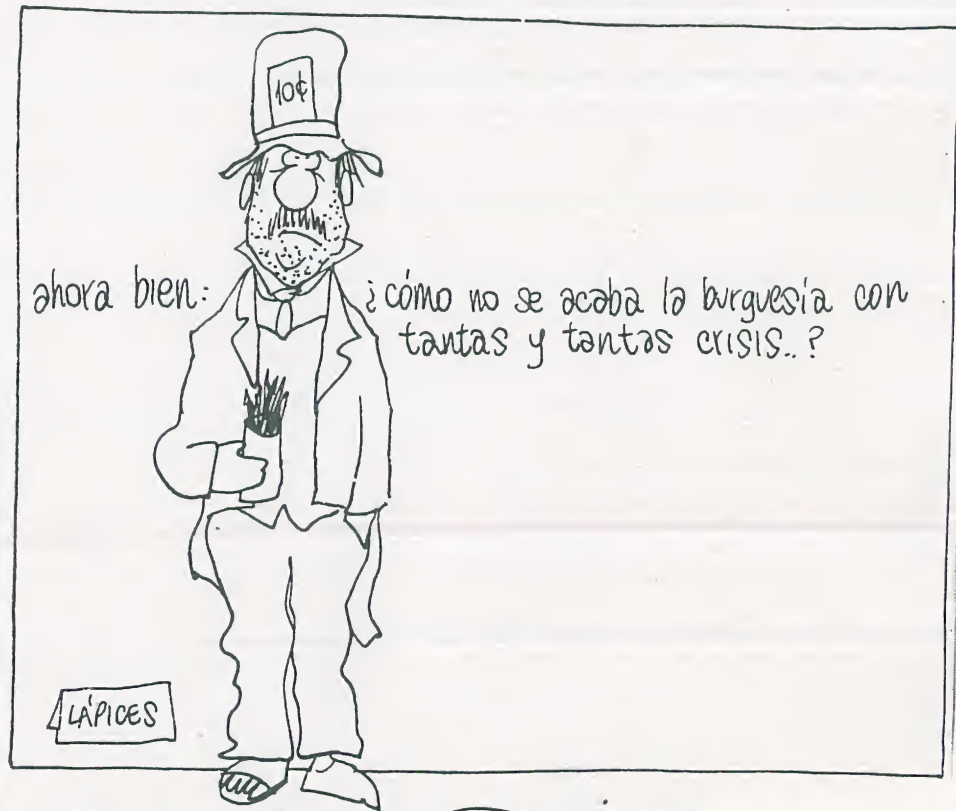 10¢
ahora bien:
¿cómo no se acaba la burguesía con
tantas y tantas crisis..?
LÁPICES